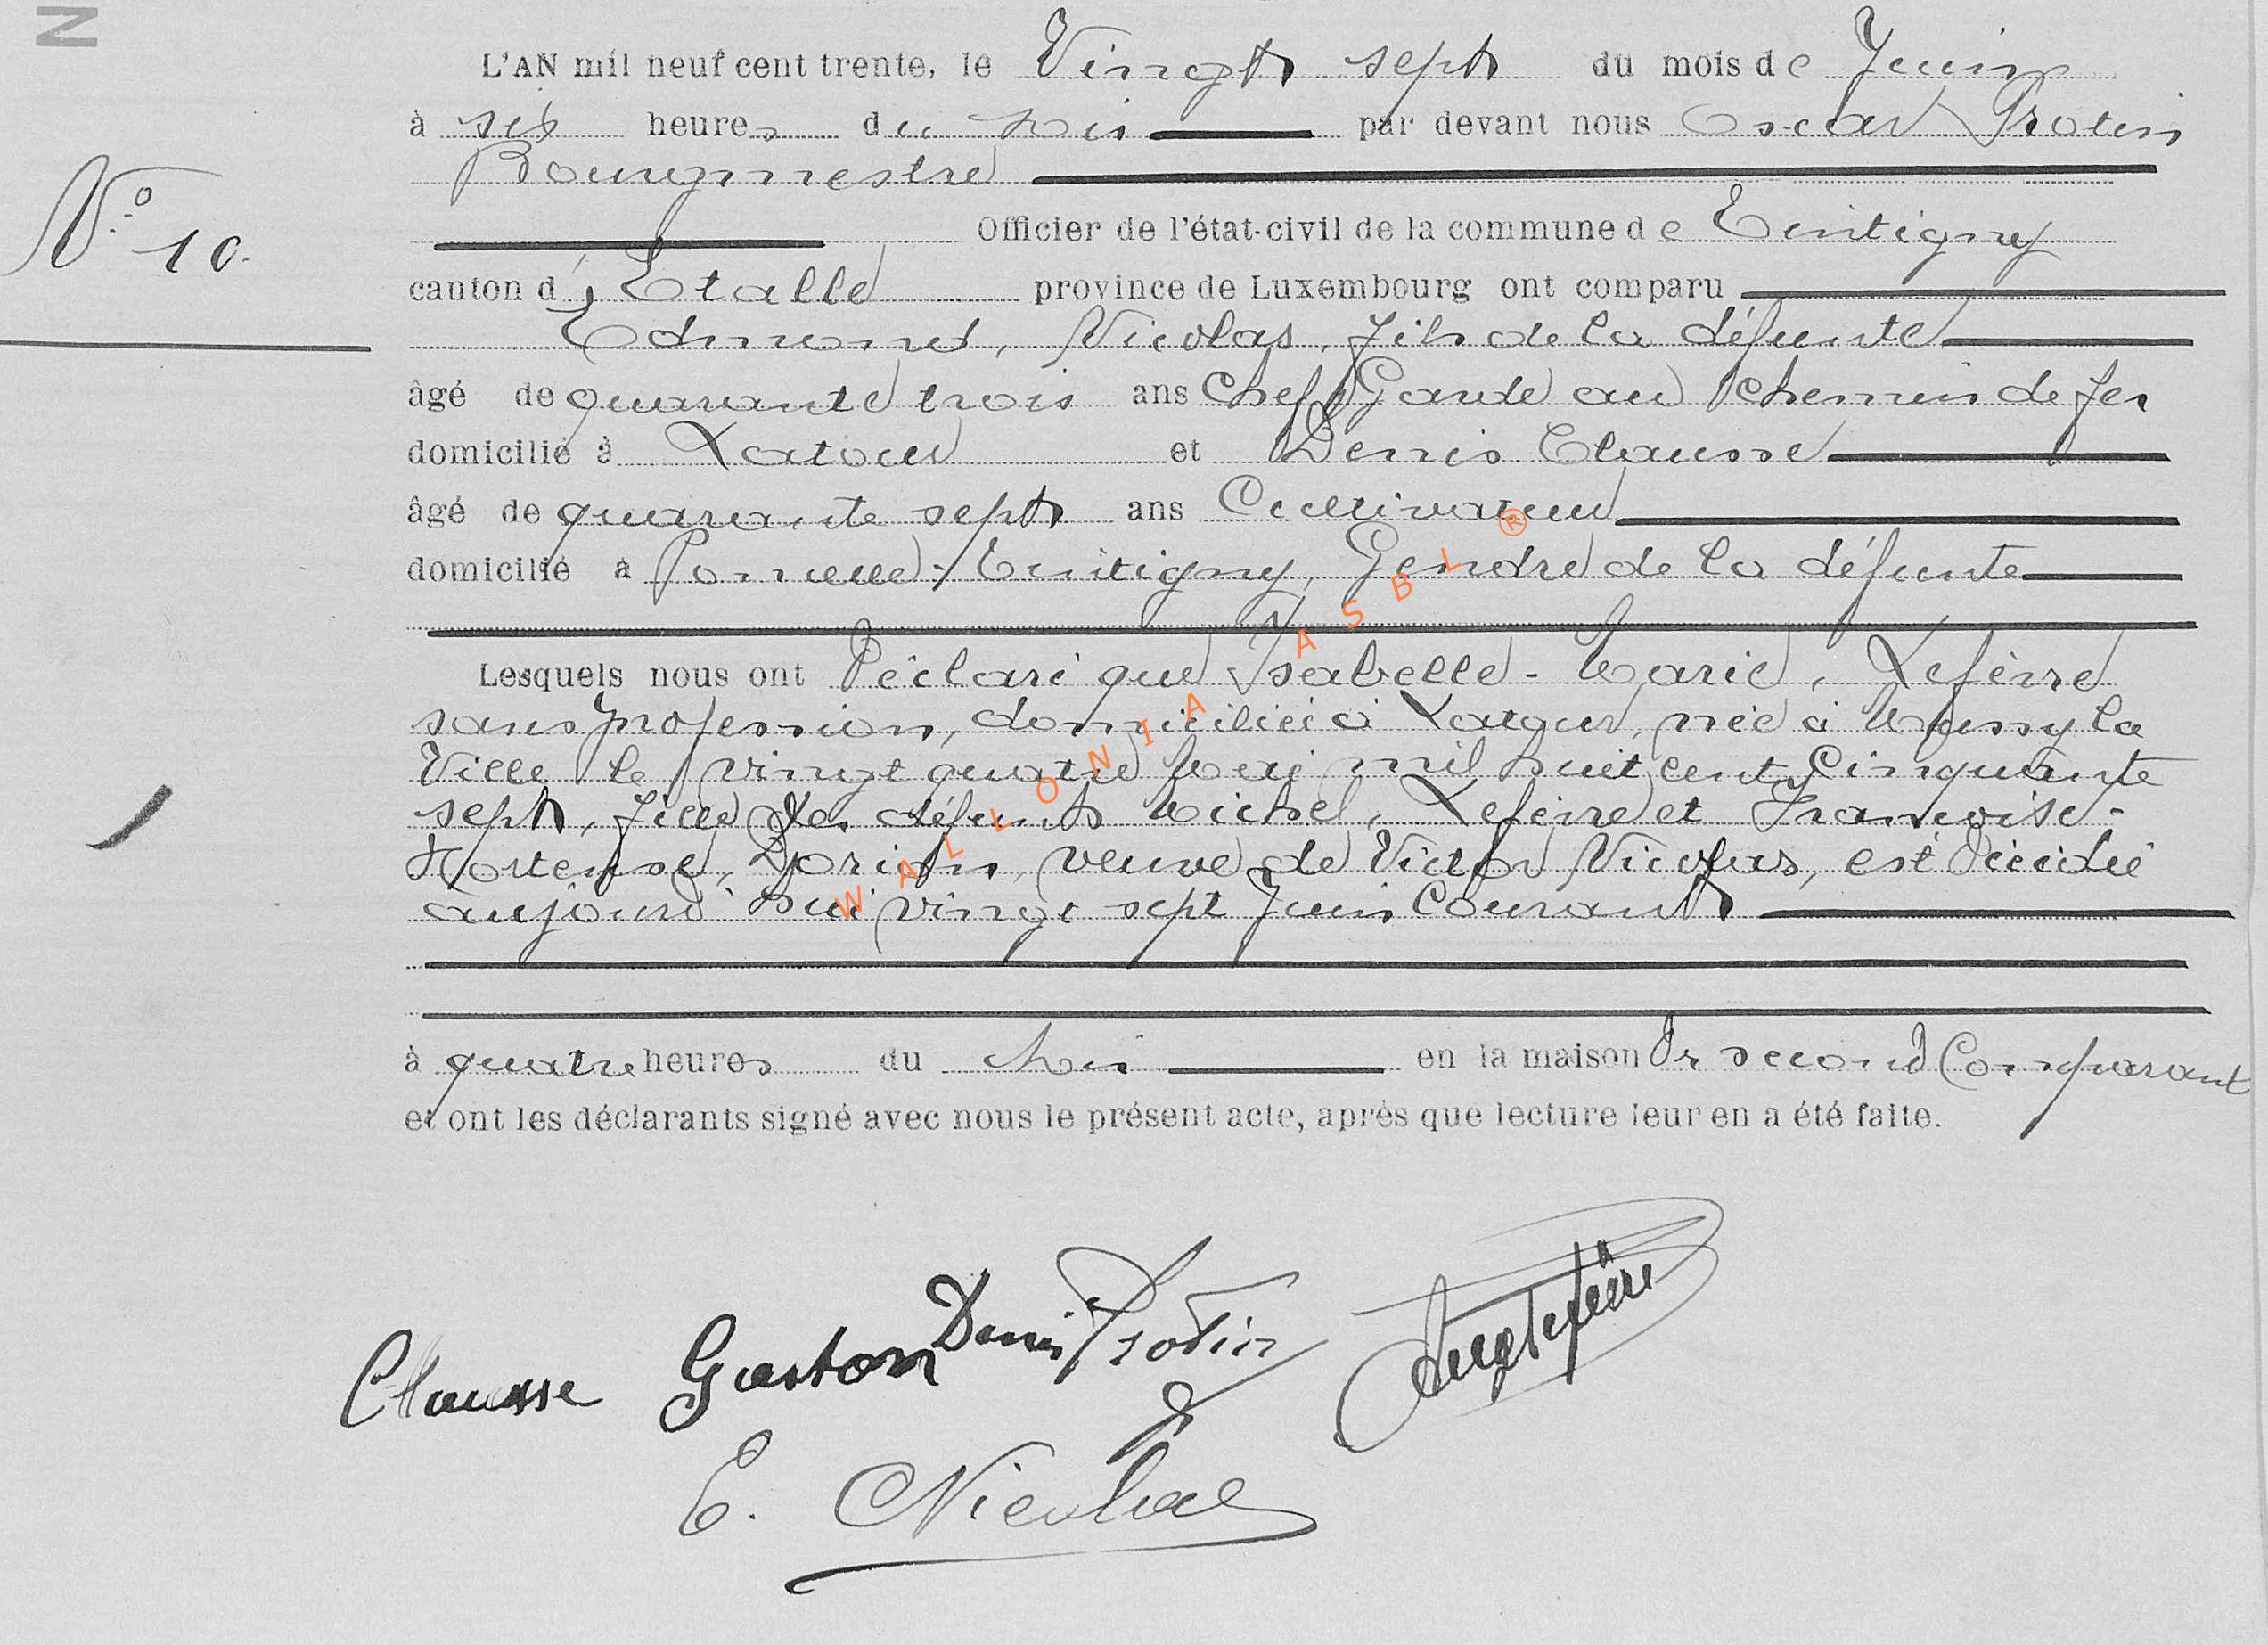 L'AN mil neuf cent trente, le Vingt sept du mois de Juin
à six heures du soir par devant nous Oscar Protin
Bourgmestre
N° 10.
Officier de l'état-civil de la commune de Tintigny
canton d'Etalle province de Luxembourg ont comparu
Edmond, Nicolas, fils de la défunte
âgé de quarante trois ans Chef Garde au Chemin de fer
domicilié à Latour et Denis Clausse
âgé de quarante sept ans Cultivateur
domicilié à Tintigny, Gendre de la défunte
Lesquels nous ont Déclaré que Isabelle-Marie, Lefèvre
sans profession, domiciliée à Latour, née à Mussy la
Ville le vingt quatre Mai mil huit cent Cinquante
sept, fille des défunts Michel, Lefèvre et Françoise-
Hortense, Dorion, veuve de Victor Nicolas, est Décédée
aujourd'hui vingt sept Juin Courant
à quatre heures du soir en la maison Dr second Comparant
et ont les déclarants signé avec nous le présent acte, après que lecture leur en a été faite.
Clausse Gaston Denis Protin
E. Nicolas
WALLONIA ASBL ®